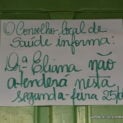 O Conselho Local de
Saúde informa:
Drª Eliana não
atenderá nesta
segunda-feira 25/